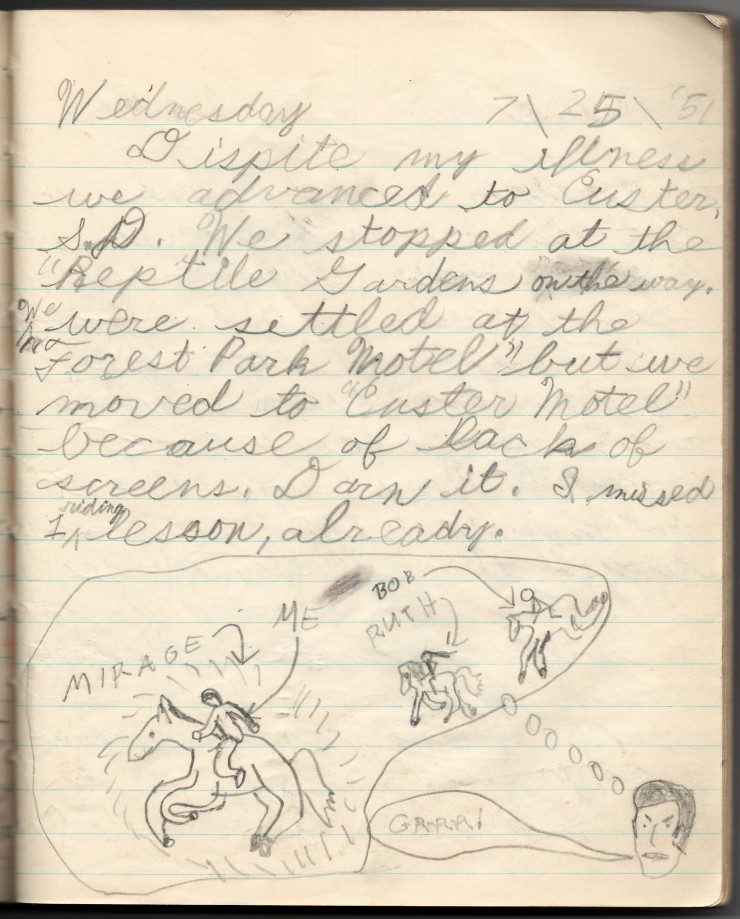 Wednesday 7\25\'51
Dispite my illness
we advanced to Custer,
S.D. We stopped at the
"Reptile Gardens on the way.
We
were settled at the
Forest Park Motel" but we
moved to "Custer Motel"
because of lack of
screens. Darn it. I missed
riding
1 lesson, already.
BOB
ME
RUTH
MIRAGE
G-R-R-R!